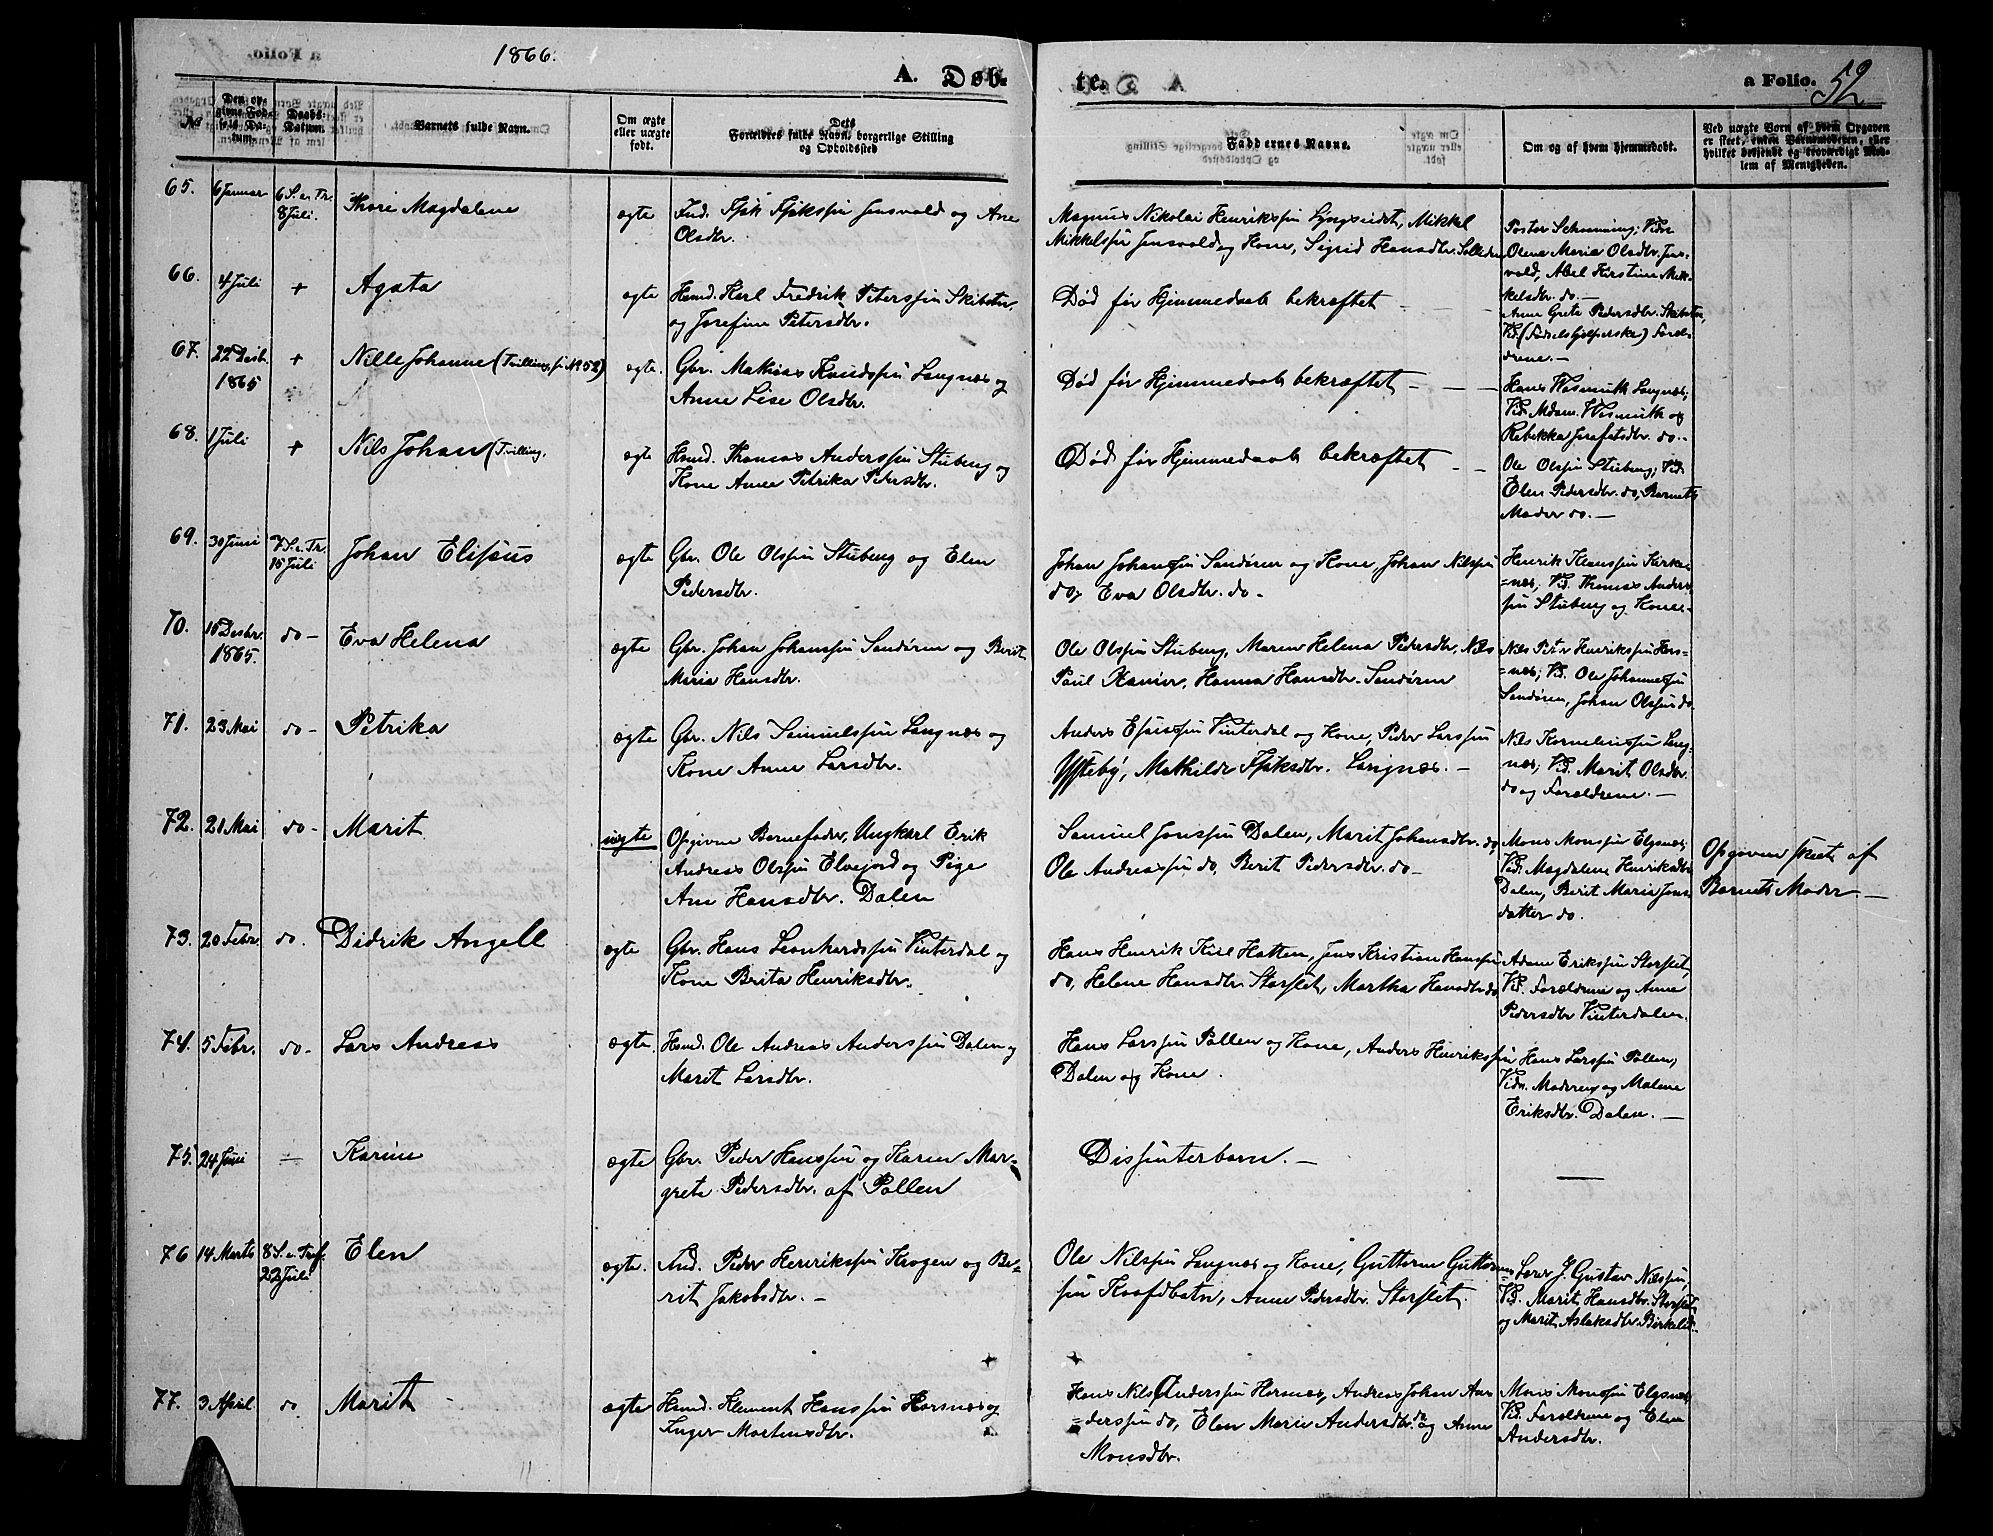 1866.
A. Døb-
te.
a Folio. 52
No
Den opgivne Fødsels Datum.
Daabs-Datum.
Barnets fulde Navn.
Om ægte eller uægte født.
Dets Forældres fulde Navn, borgerlige Stilling og Opholdssted
Faddernes Navne.
Om og af hvem hjemmedøbt.
Ved uægte Børn af hvem Opgaven er skeet, enten Barnemoderen, eller hvilket bekjendt og troværdigt Medlem af Menigheden.
65. 6 Januar 6 S. e. Tr. 8 Juli. Thore Magdalene ægte Ind. Isak Isaksen Jensvold og Ane
Olsdtr.
Magnus Nikolai Henriksen Lyngseidet, Mikkel
Mikkelsen Jensvold og Kone, Sigrid Hansdtr.
Pastor Schønning; Vidn.
Olene Maria Olsdtr. Jens-
vold, Abel Kirstine Mik-
kelsdtr. do. —
66. 4 Juli + Agata ægte Hsmd. Karl Fredrik Petersen Skibotn,
og Josefine Petersdtr.
Død før Hjemmedaab bekræftet — —
Anne Grete Pedersdtr. Skibotn,
Vid. (Fødselshjelperske) Foræl-
drene. —
67. 22 Desbr. 1865 + Nille Johanne (Tvilling, No 52) ægte. Gbr. Mathias Knudsen Langnæs og
Anne Lise Olsdtr.
Død før Hjemmedaab bekræftet — — —
Hans Wasmuth Langnæs;
Vid. Mdam. Wasmuth og
Rebekka Josefsdtr. do. -
68. 1 Juli + Nils Johan (Tvilling, ægte Hsmd. Thomas Anderssen Stubeng og
Kone Anne Petrika Petersdtr.
Død før Hjemmedaab bekræftet — —
Ole Olssen Stubeng; Vid.
Elen Pedersdtr. do, Barnets
Moder do. —
69. 30 Juni 7 S. e. Tr. 15 Juli Johan Elisæus ægte Gbr. Ole Olssen Stubeng og Elen
Pedersdtr.
Johan Johansen Sandøren og Kone, Johan Nilssen
do, Eva Olsdtr. do -
Henrik Klaussen Kirke-
=næs; Vid. Thomas Anders-
sen Stubeng og Kone. -
70. 16 Desbr. 1865. do — Eva Helena ægte Gbr. Johan Johanssen Sandøren og Berit
Maria Hansdtr.
Ole Olssen Stubeng, Maren Helena Pedersdtr, Nils
Paul, Hanna Hansdtr. Sandøren
Nils Peter Henriksen Hors-
=næs; Vid. Ole Johannessen
Sandøren, Johan Olssen do.
71. 23 Mai do - Petrika ægte Gbr. Nils Samuelsen Langnæs og
Kone Anne Larsdtr.
Anders Esaiassen Vinterdal og Kone, Peder Larssen
Ysteby, Mathilde Isaksdtr. Langnæs. —
Nils Korneliussen Lang-
næs, Vid. Marit Olsdtr.
do og Forældrene. —
72. 21 Mai do - Marit uægte Opgiven Barnefader, Ungkarl Erik
Andreas Olssen Elvejord og Pige
Ane Hansdtr. Dalen
Samuel Jonssen Dalen, Marit Johansdtr. do,
Ole Andreassen do, Berit Pedersdtr. do —
Mons Monssen Elgsnæs;
Vid. Magdalene Henriksdtr.
Dalen, Berit Maria Jens-
datter do.
Opgiven skeet af
Barnets Moder. —
73. 20 Febr. do. Didrik Angell ægte Gbr. Hans Leonhardssen Vinterdal og
Kone Brita Henriksdtr.
Hans Henrik Kiil Hatten, Jens Kristian Hanssen
do, Helene Hansdtr. Storslet, Martha Hansdtr. do
Adam Erikssen Storslet,
Vid. Forældrene og Anne
Pedersdtr Vinterdalen.
74. 5 Febr. do - Lars Andreas ægte. Hsmd. Ole Andreas Anderssen Dalen og
Marit Larsdtr.
Hans Larssen Pollen og Kone, Anders Henrikssen
Dalen og Kone.
Hans Larssen Pollen,
Vidn. Moderen og Malene
Eriksdtr. Dalen. —
75. 24 Juni — Karine ægte Gbr. Peder Hanssen og Karen Mar-
grete Pedersdtr. af Pollen
Dissenterbarn. —
—
76 14 Marts 8 S. e. Tref. 22 Juli Elen ægte. Ind. Peder Henrikssen Krogen og Be-
rit Jakobsdtr. —
Ole Nilssen Langnæs og Kone, Guttorm Guttorms-
sen Koofdbotn, Anne Pedersdtr. Storslet.
Lærer J. Gustav Nilssen,
Vid. Marit Hansdtr. Storslet
og Marit Aslaksdtr. Birkelid.
77. 3 April. do Marit ægte Hsmd. Klement Hanssen Horsnæs og
Inger Mortensdtr.
Hans Nils Anderssen Horsnæs, Andreas Johan An-
=derssen do, Elen Marie Andersdtr. do og Anne
Monsdtr.
Mons Monssen Elgsnæs,
Vid. Forældrene og Elen
Andersdtr.